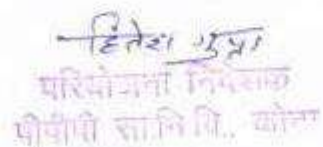 हितेश गुप्ता
परियोजना निदेशक
पीपीपी सा.नि.वि., कोटा